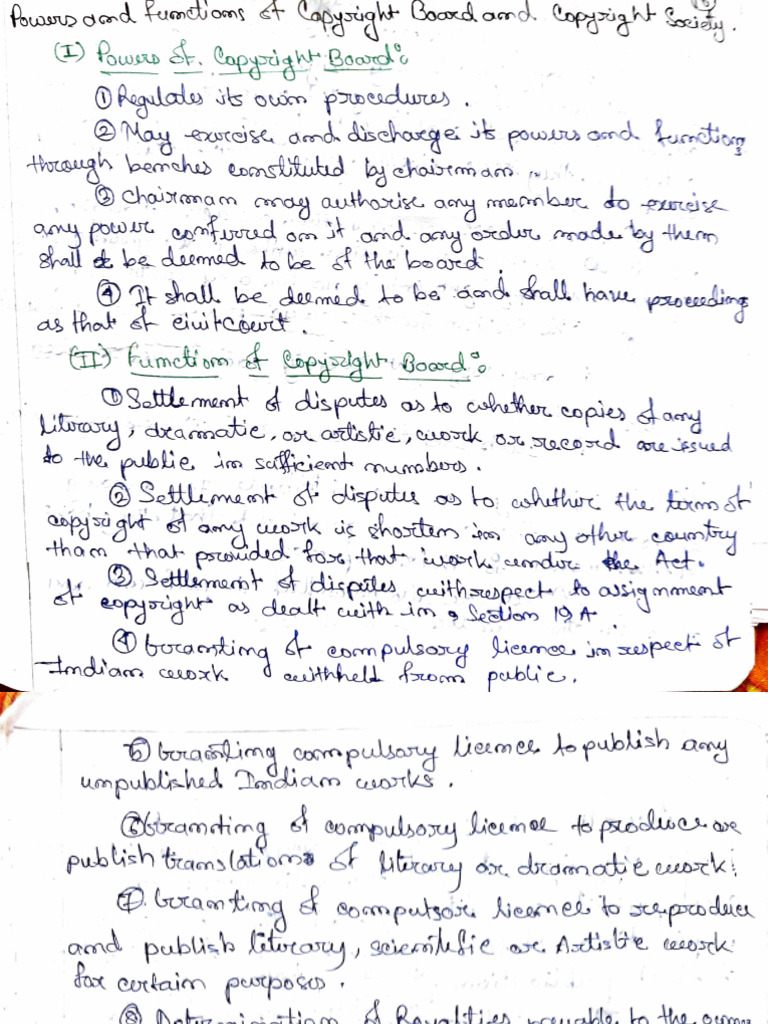 Powers and functions of Copyright Board and Copyright Society.
(I) Powers of. Copyright Board:
① Regulates its own procedures.
② May exercise and discharge its powers and functions
through benches constituted by chairman.
③ Chairman may authorise any member to exercise
any power conferred on it and any order made by them
shall be deemed to be of the board.
④ It shall be deemed to be and shall have proceeding
as that of civil court.
(II) Function of Copyright Board:
① Settlement of disputes as to whether copies of any
literary, dramatic, or artistic, work or record are issued
to the public in sufficient numbers.
② Settlement of disputes as to whether the term of
copyright of any work is shorten in any other country
than that provided for that work under the Act.
③ Settlement of disputes with respect to assignment
of copyright as dealt with in Section 19A.
④ Granting of compulsory licence in respect of
Indian work withheld from public.
⑤ Granting compulsory licence to publish any
unpublished Indian works.
⑥ Granting of compulsory licence to produce or
publish translations of literary or dramatic work.
⑦ Granting of compulsor licence to reproduce
and publish literary, scientific or Artistic work
for certain purposes.
⑧ Determination of Royalities payable to the